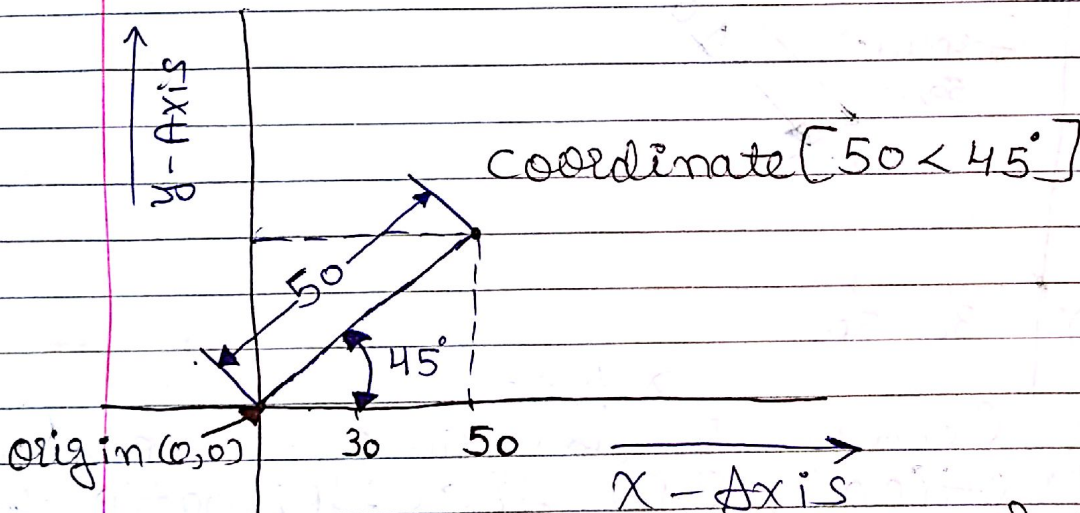 y-Axis
coordinate [50 < 45°]
50
45°
origin (0,0)
30
50
X-Axis